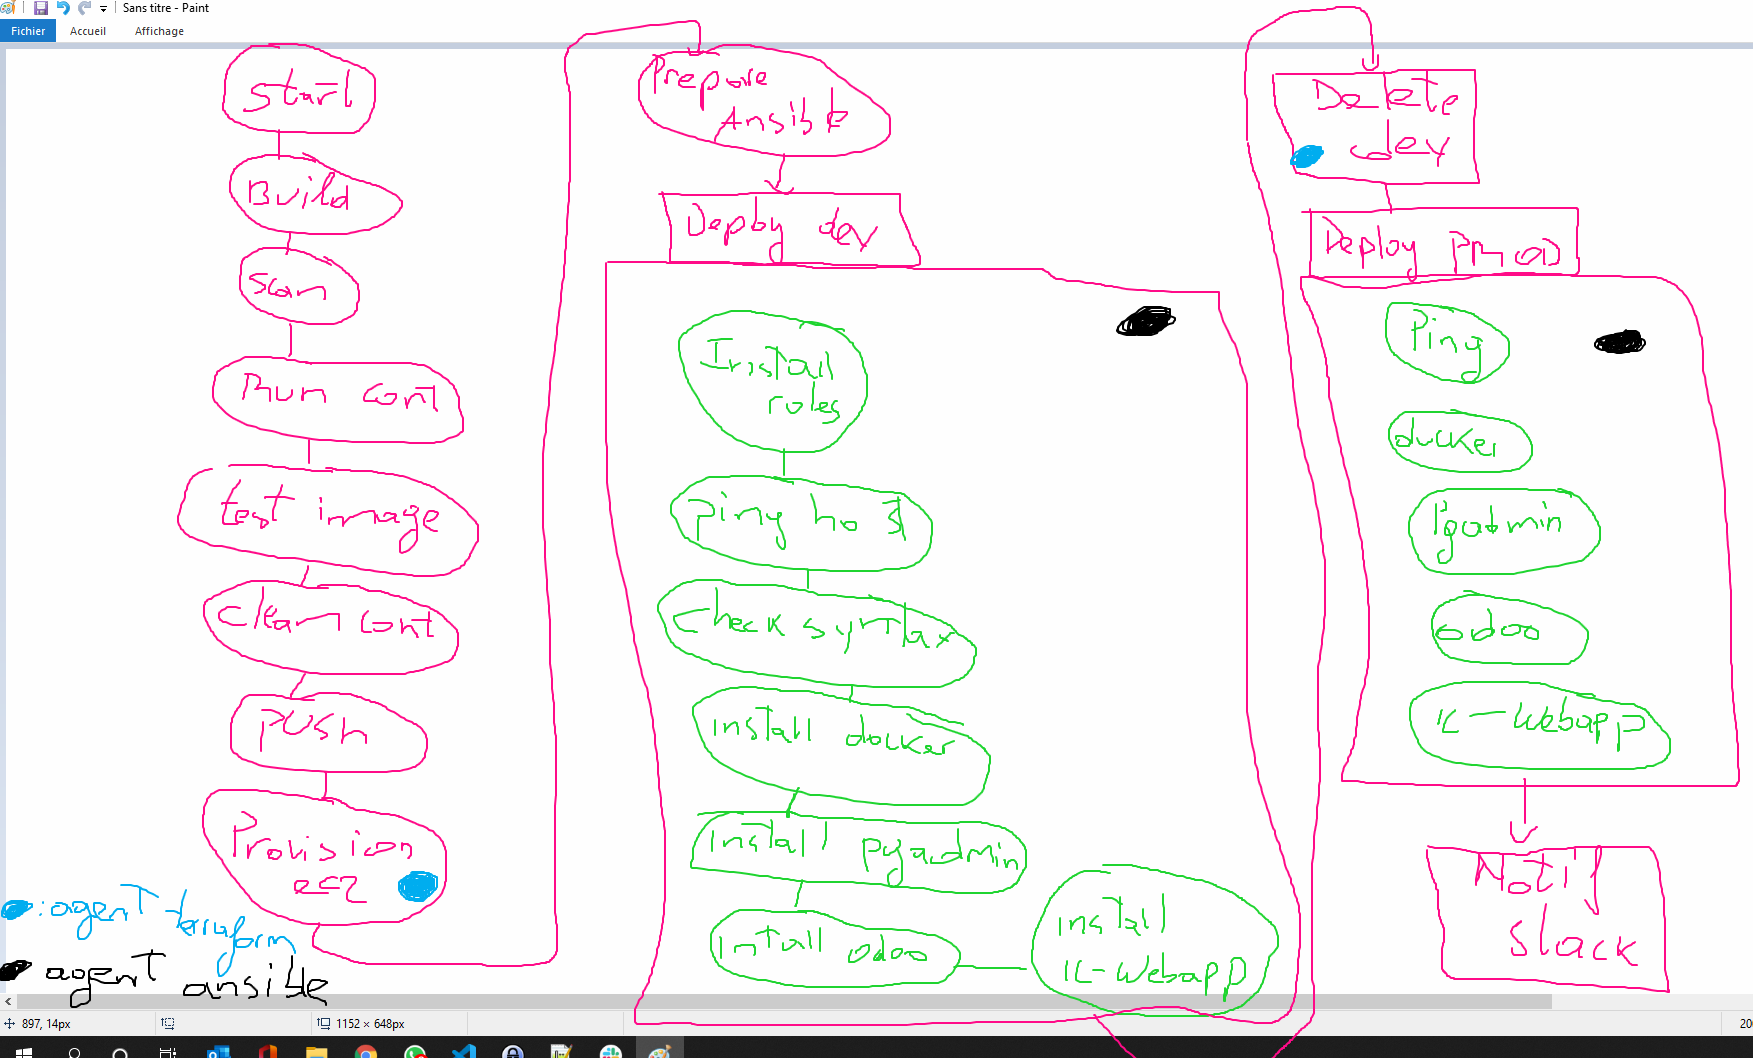 Sans titre - Paint
Fichier Accueil Affichage
Start
Build
Scan
Run Cont
test image
Clean Cont
Push
Provision
ec2
: agent terraform
agent ansible
Prepare
Ansible
Deploy dev
Install
roles
Ping
Check syntax
install docker
install pgadmin
Intall odoo
install
ic-webapp
Delete
dev
Deploy PROD
Ping
docker
Pgadmin
odoo
ic-webapp
Notif
Slack
897, 14px
1152 × 648px